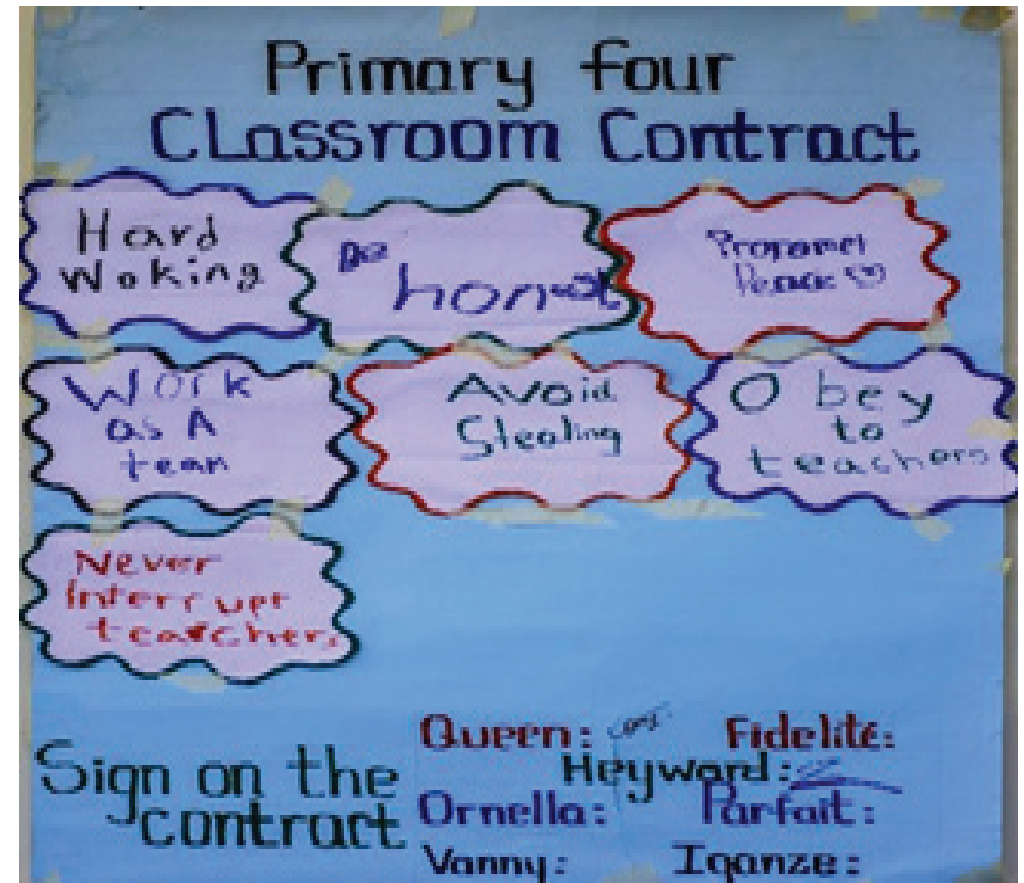 Primary four
CLassroom Contract
Hard
Woking
Be
honest
Work
as A
team
Avoid
Stealing
O bey
to
teachers
Never
Interrupt
teachers
Sign on the
contract
Queen:
Fidelité:
Heyward:
Ornella:
Parfait:
Vanny:
Iganze: